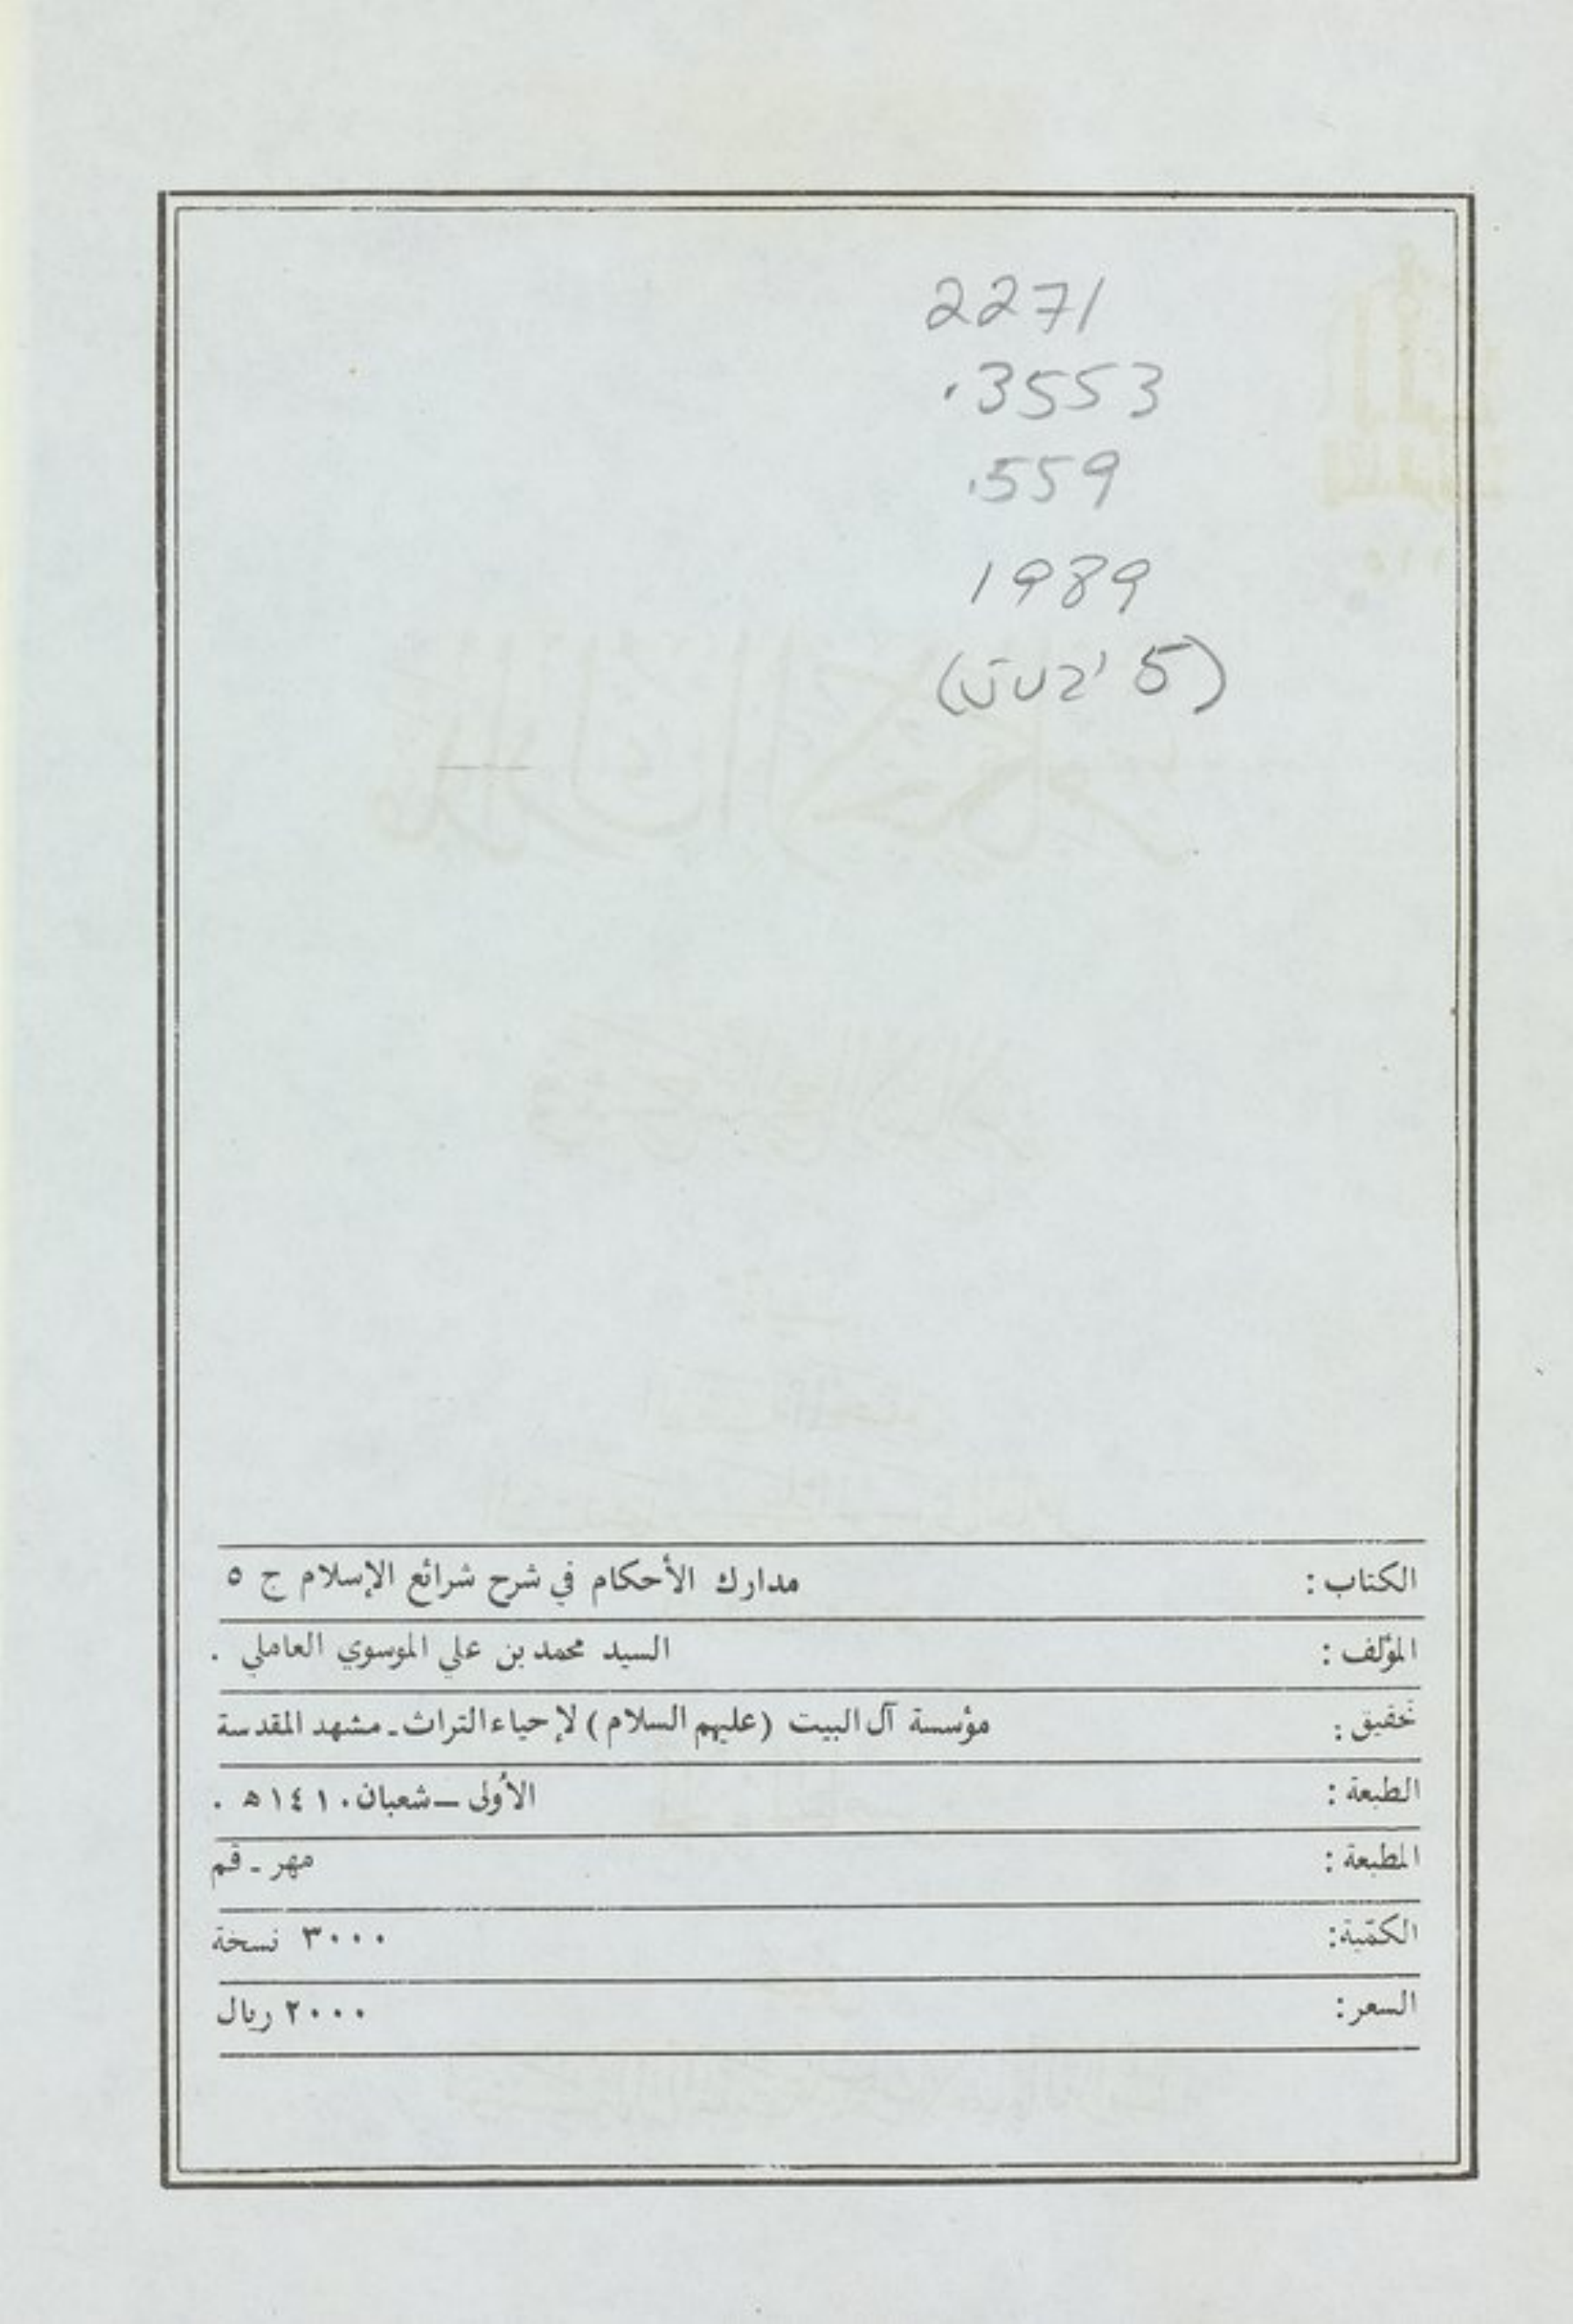 2271
.3553
.559
1989
(juz' 5)
الكتاب : مدارك الأحكام في شرح شرائع الإسلام ج ٥
المؤلف : السيد محمد بن علي الموسوي العاملي .
تحقيق : مؤسسة آل البيت (عليهم السلام) لإحياء التراث ـ مشهد المقدسة
الطبعة : الأولى ــ شعبان ١٤١٠ هـ .
المطبعة : مهر ـ قم
الكمّية: ٣٠٠٠ نسخة
السعر: ٢٠٠٠ ريال